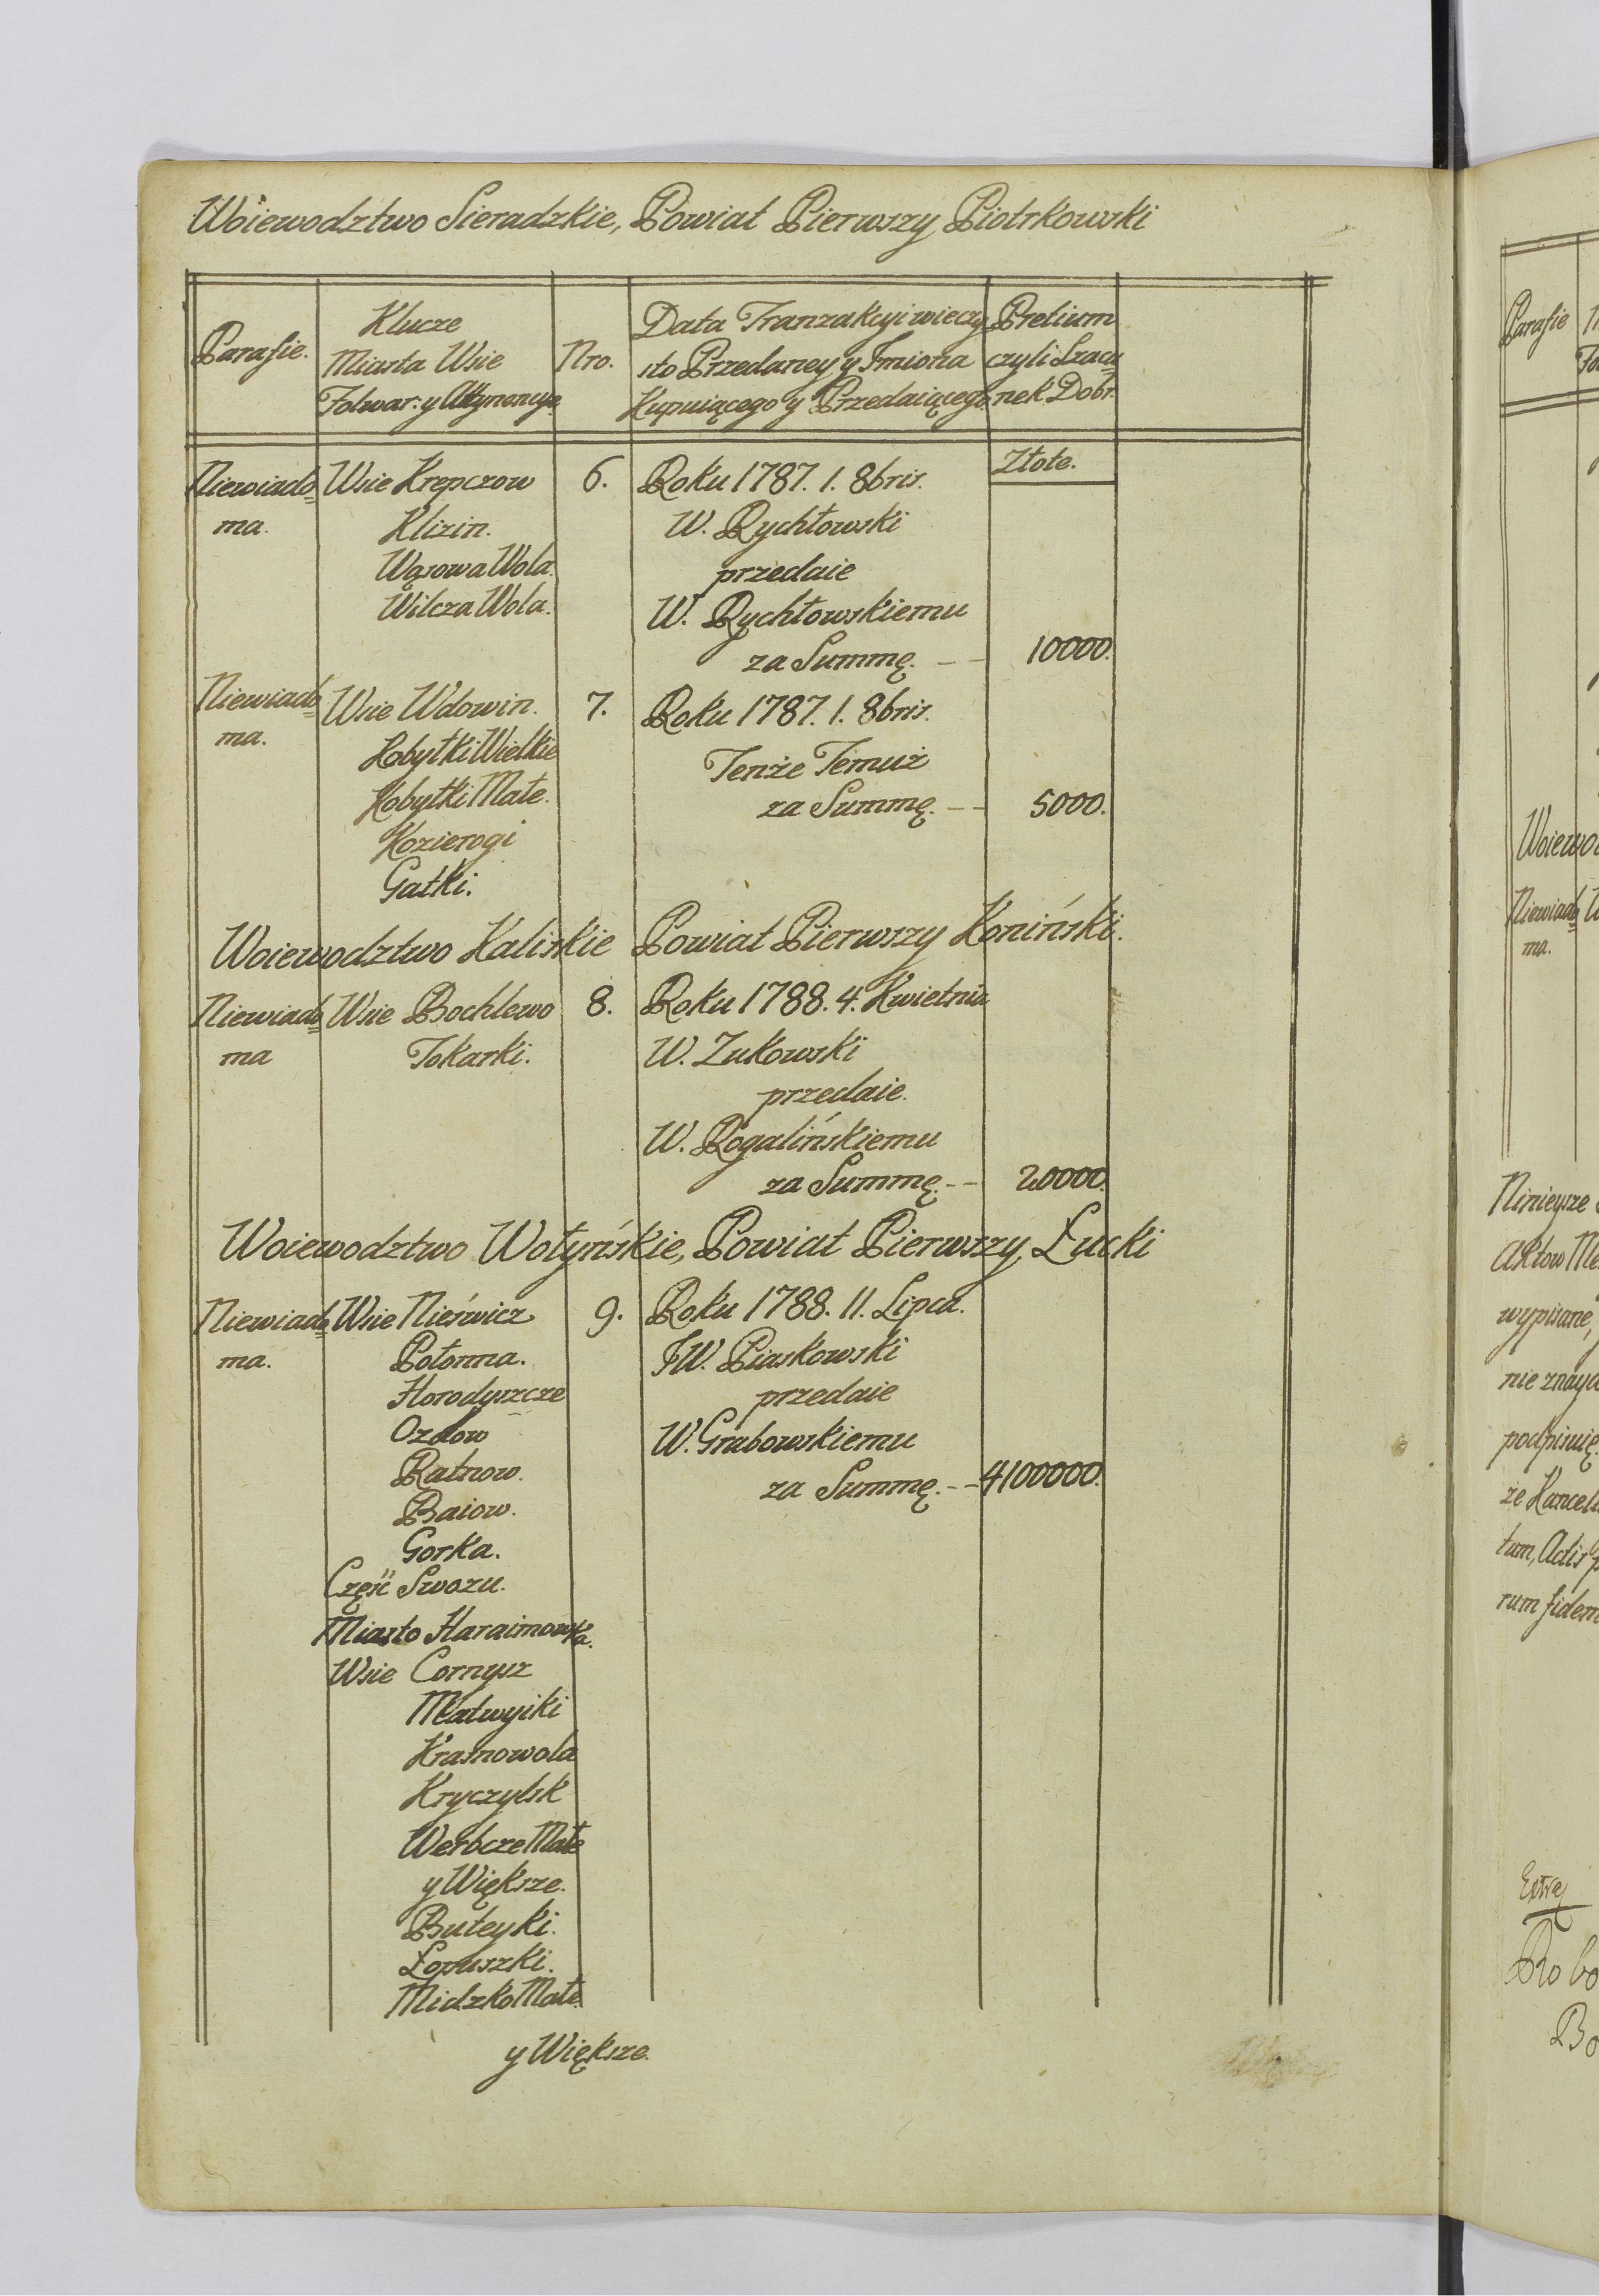 Woiewodztwo Sieradzkie, Powiat Pierwszy Piotrkowski
Parafie.
Klucze
Miasta Wsie
Folwar: y Attynencye
Nro.
Data Tranzakcyi wieczy
sto Przedaney y Imiona
Kupuiącego y Przedaiącego
Pretium
czyli Szacu
nek Dobr.
Złote.
Niewiado=
ma.
Wsie Krepczow
Klizin.
Wąsowa Wola.
Wilcza Wola.
6.
Roku 1787. 1. 8bris.
W. Rychłowski
przedaie
W. Rychłowskiemu
za Summę. — — 10000.
Niewiado=
ma.
Wsie Wdowin.
Kobyłki Wielkie
Kobyłki Małe.
Kozierogi
Gałki.
7.
Roku 1787. 1. 8bris.
Tenże Temuż
za Summę. — — 5000.
Woiewodztwo Kaliskie Powiat Pierwszy Koniński.
Niewiado=
ma
Wsie Bochlewo
Tokarki.
8.
Roku 1788. 4. Kwietnia
W. Zukowski
przedaie.
W. Rogalińskiemu
za Summę. — — 20000.
Woiewodztwo Wołyńskie, Powiat Pierwszy Łucki
Niewiado=
ma.
Wsie Nieświcz
Połonna.
Horodyszcze
Ozdow
Ratnow.
Baiow.
Gorka.
Część Swozu.
Miasto Haraimowka.
Wsie Cornysz
Matwyiki
Krasnowola
Kryczylsk
Werbcze Małe
y Większe.
Buteyki.
Łopuszki.
Midzko Małe.
y Większe.
9.
Roku 1788. 11. Lipca.
JW. Piaskowski
przedaie
W. Grabowskiemu
za Summę. — — 4100000.
Parafie
Woiewo
Niewiado=
ma.
Ninieysze
Aktow Me
wypisane,
nie znayd
podpisuię.
że Kancel
tum, Actis
rum fidem